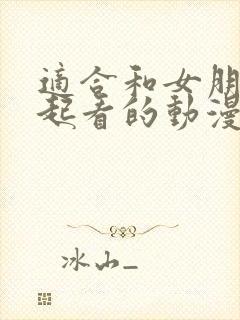 適合和女朋
起看的動漫
冰山_